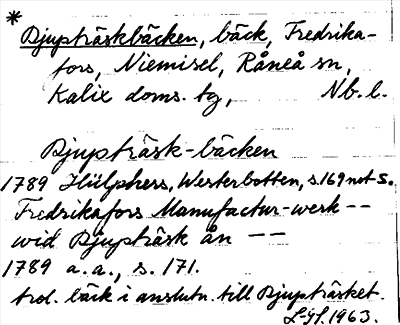 *
Djupträskbäcken, bäck, Fredrika-
fors, Niemisel, Råneå sn,
Kalix doms. tg, Nb. l.
Djupträsk-bäcken
1789 Hülphers, Westerbotten, s.169 not S.
Fredrikafors Manufactur-werk --
wid Djupträsk ån --
1789 a. a., s. 171.
trol. bäck i anslutn. till Djupträsket.
1963.